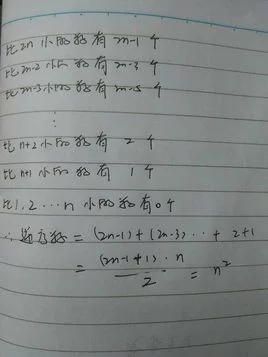 比2n小的数有2n-1个
比2n-2小的数有2n-3个
比2n-3小的数有2n-5个
⋮
比n+2小的数有 2 个
比n+1小的数有 1 个
比1,2…n小的数有0个
∴逆序数=(2n-1)+(2n-3)…+2+1
=\frac{(2n-1+1)·n}{2}=n²